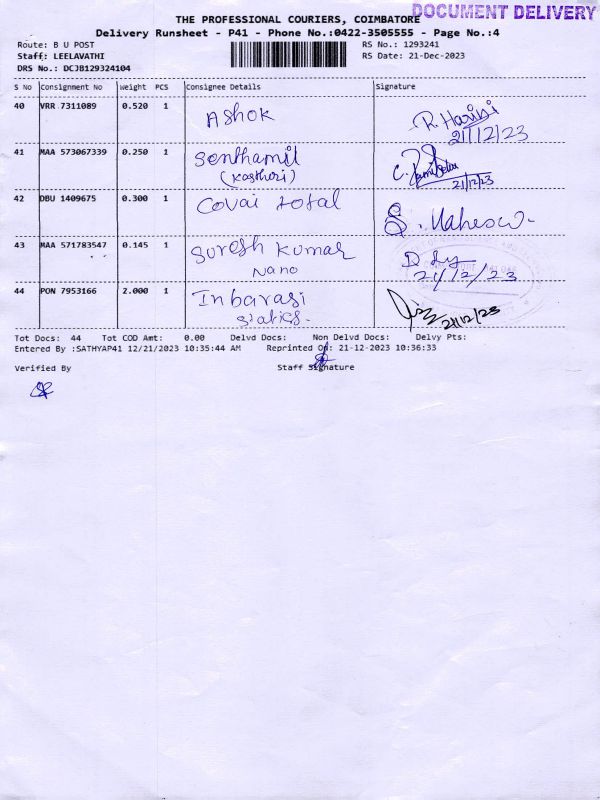 THE PROFESSIONAL COURIERS, COIMBATORE
DOCUMENT DELIVERY
Delivery Runsheet - P41 - Phone No.:0422-3505555 - Page No.:4
Route: B U POST
RS No.: 1293241
Staff: LEELAVATHI
RS Date: 21-Dec-2023
DRS No.: DCJB129324104
S No Consignment No Weight PCS Consignee Details Signature
40 VRR 7311089 0.520 1 Ashok R. Harini
21/12/23
41 MAA 573067339 0.250 1 Senthamil
(Kasthuri)
21/12/23
42 DBU 1409675 0.300 1 Covai total S. Mahesw.
43 MAA 571783547 0.145 1 Suresh Kumar
Nano 21/12/23
44 PON 7953166 2.000 1 Inbarasi
Statics. 21/12/23
Tot Docs: 44 Tot COD Amt: 0.00 Delvd Docs: Non Delvd Docs: Delvy Pts:
Entered By :SATHYAP41 12/21/2023 10:35:44 AM Reprinted On: 21-12-2023 10:36:33
Verified By Staff Signature